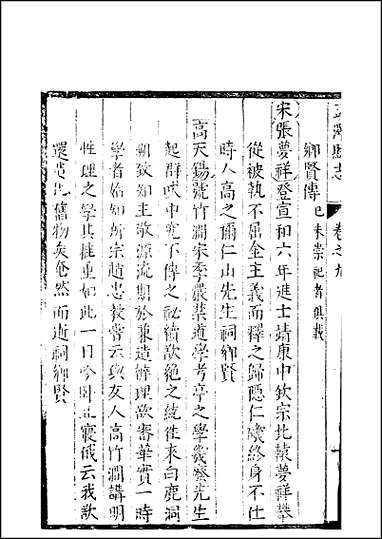 縣志 卷之九
鄉賢傳 已未崇祀者俱載
宋張夢祥登宣和六年進士靖康中欽宗北轅夢祥攀
從被執不屈金主義而釋之歸隱仁巉終身不仕
時人高之稱仁山先生祠鄉賢
高天錫號竹澗宋季嚴禁道學考亭之學幾廢先生
起群咲中究不傳之祕續欲絕之統往來白鹿洞
朔致知主敬源流期於兼造辨理欲審華實一時
學者始知所宗趙忠教嘗云與友人高竹澗講明
性理之學其推重如此一日吟臥正寢俄云我欲
還造化舊物矣奄然而逝祠鄉賢